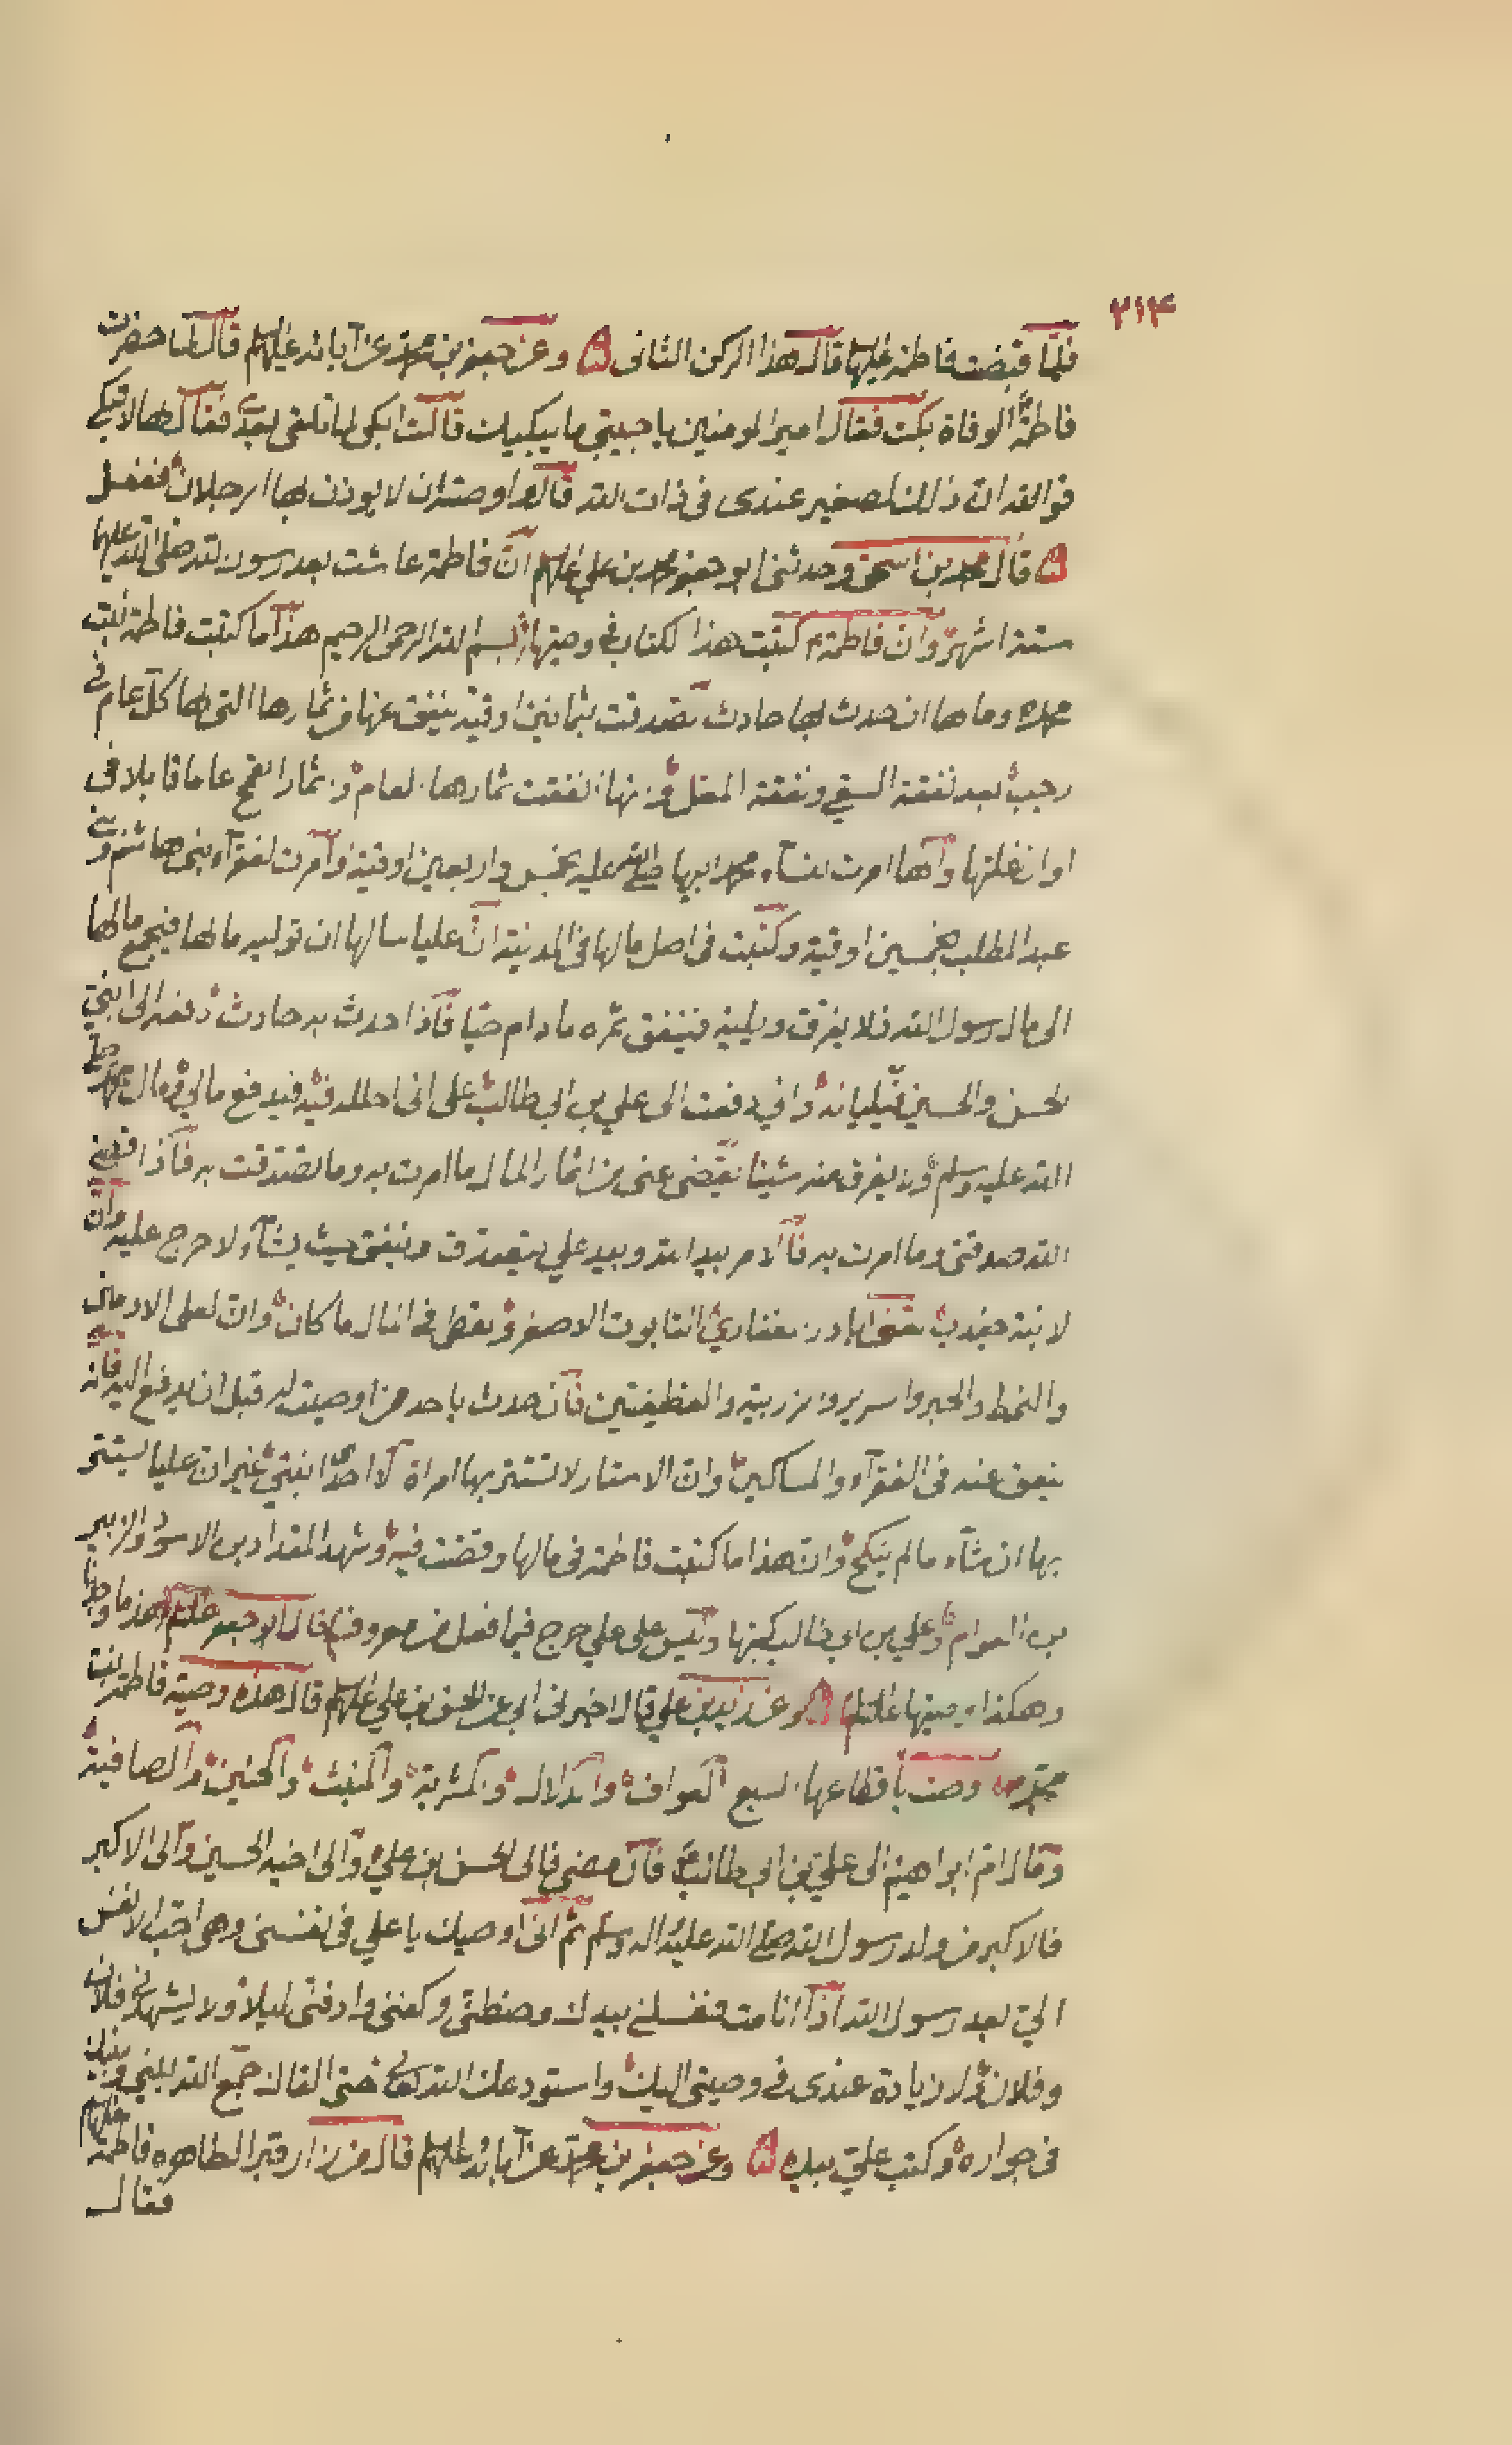 ٢١٤
فلما قبضت فاطمة عليها قال هذا الركن الثاني ۵ وعن جعفر بن محمد عن آبائه عليهم قال لما حضرت
فاطمة الوفاة بكت فقال امير المومنين يا حبيبتي ما يبكيك قالت ابكي لما تلقى بعدي فقال لها لا تبكي
فوالله ان ذلك لصغير عندي في ذات الله قال واوصته ان لا يوذن لها الرجلان ففعل
۵ قال محمد بن اسحق وحدثني ابو جعفر محمد بن علي عليهم ان فاطمة عاشت بعد رسول الله صلى الله عليهما
ستة اشهر وان فاطمة كتبت هذا الكتاب في وصيتها بسم الله الرحمن الرحيم هذا ما كتبت فاطمة بنت
محمد وما لها ان حدث بها حادث تصدقت بثمانين اوقية ينفق عنها من ثمارها التي لها كل عام في
رجب بعد نفقة السقي ونفقة المغل وانها انفقت ثمارها العام وثمار القمح عاما قابلا في
اوان غلتها وانها امرت لنسآء محمد ابيها صلى الله عليه بخمس واربعين اوقية وامرت لفقرآء بني هاشم وبني
عبد المطلب بخمسين اوقية وكتبت في اصل مالها في المدينة ان عليا سالها ان توليه مالها فيجمع مالها
الى مال رسول الله فلا يفرق ويليه فينفق ثمره ما دام حيا فاذا حدث به حادث دفعه الى ابني
الحسن والحسين فيليانه واني دفعت الى علي بن ابي طالب على اني احلله فيه فيدفع مالي ومال محمد صلى
الله عليه وسلم ولا يفرق منه شيئا يقضي عني من اثمار المال ما امرت به وما تصدقت به فاذا قضى
الله صدقتي وما امرت به فالامر بيد الله وبيد علي يتصدق وينفق حيث يشآء لا حرج عليه وان
لابنة جندب التابوت الاصغر وتعطى في المال ما كان وان لعلي الادمان
والنمط والحبر والسرير والزربية والقطيفتين فان حدث باحد من اوصيت له قبل ان يدفع اليه فانه
ينفق عنه في الفقرآء والمساكين وان الاستار لا تستتر بها امراة الا احدى ابنتي غير ان عليا يستتر
بها ان شآء ما لم ينكح وان هذا ما كتبت فاطمة في مالها وقضت فيه وشهد المقداد بن الاسود والزبير
بن العوام وعلي بن ابي طالب كتبها وليس على علي حرج فيما فعل من معروف قال ابو جعفر عليه السلم هذا ما وجدنا
وهكذا وصيتها عليها السلم ۵ وعن زيد بن علي قال اخبرني ابي عن الحسن بن علي عليهم قال هذه وصية فاطمة بنت
محمد ص اوصت باقطاعها السبع العواف والدلال والمشربة والمبيت والحسنى والصافية
ومال ام ابراهيم الى علي بن ابي طالب فان مضى فالى الحسن بن علي والى اخيه الحسين والى الاكبر
فالاكبر من ولد رسول الله صلى الله عليه واله وسلم ثم اني اوصيك يا علي في نفسي وهي احب الانفس
الي بعد رسول الله اذا انا مت فغسلني بيدك وحنطني وكفني وادفني ليلا ولا يشهدني فلان
وفلان ولا زيادة عندي في وصيتي اليك واستودعك الله تعالى حتى القاك جمع الله بيني وبينك
في جواره وكتب علي بيده ۵ وعن جعفر بن محمد عن آبائه عليهم قال من زار قبر الطاهره فاطمة عليها
فقال